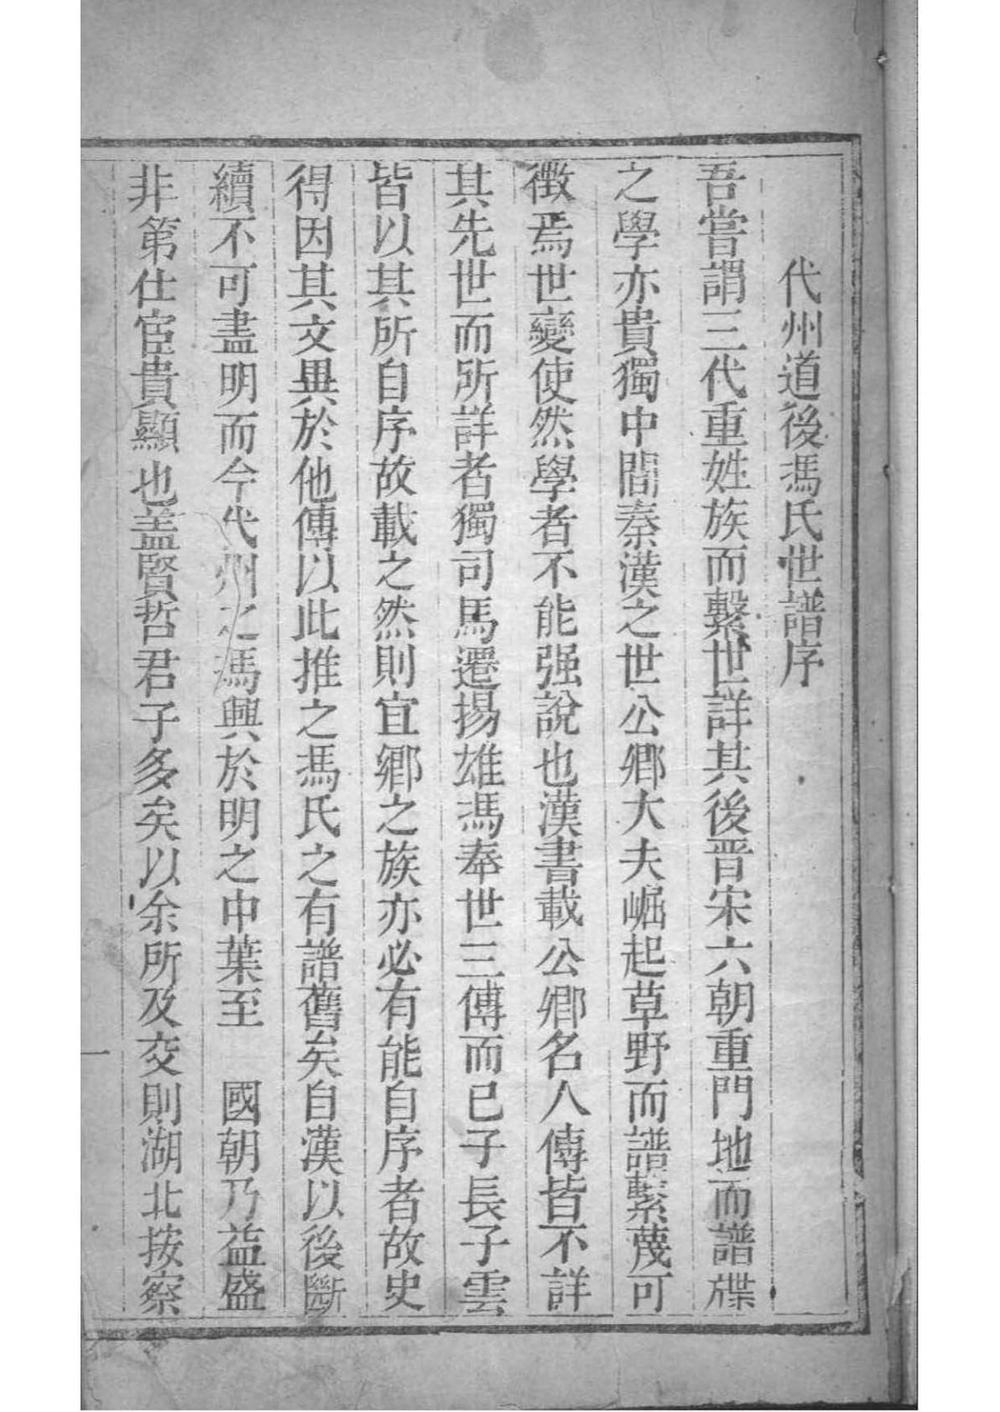 代州道後馮氏世譜序
吾嘗謂三代重姓族而繫世詳其後晋宋六朝重門地而譜牒
之學亦貴獨中間秦漢之世公卿大夫崛起草野而譜繫蔑可
徵焉世變使然學者不能强說也漢書載公卿名人傳皆不詳
其先世而所詳者獨司馬遷揚雄馮奉世三傳而已子長子雲
皆以其所自序故載之然則宜鄉之族亦必有能自序者故史
得因其文異於他傳以此推之馮氏之有譜舊矣自漢以後斷
續不可盡明而今代州之馮興於明之中葉至　國朝乃益盛
非第仕宦貴顯也盖賢哲君子多矣以余所及交則湖北按察
一